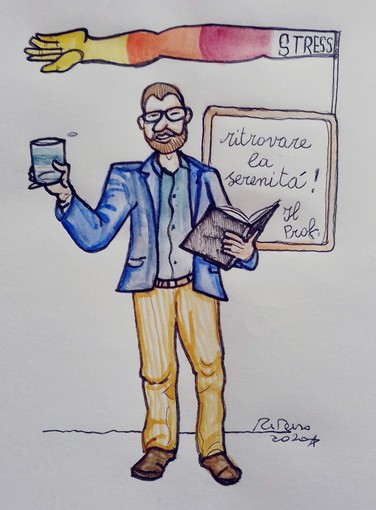 STRESS
ritrovare
la
serenitá!
Il
Prof.
2020